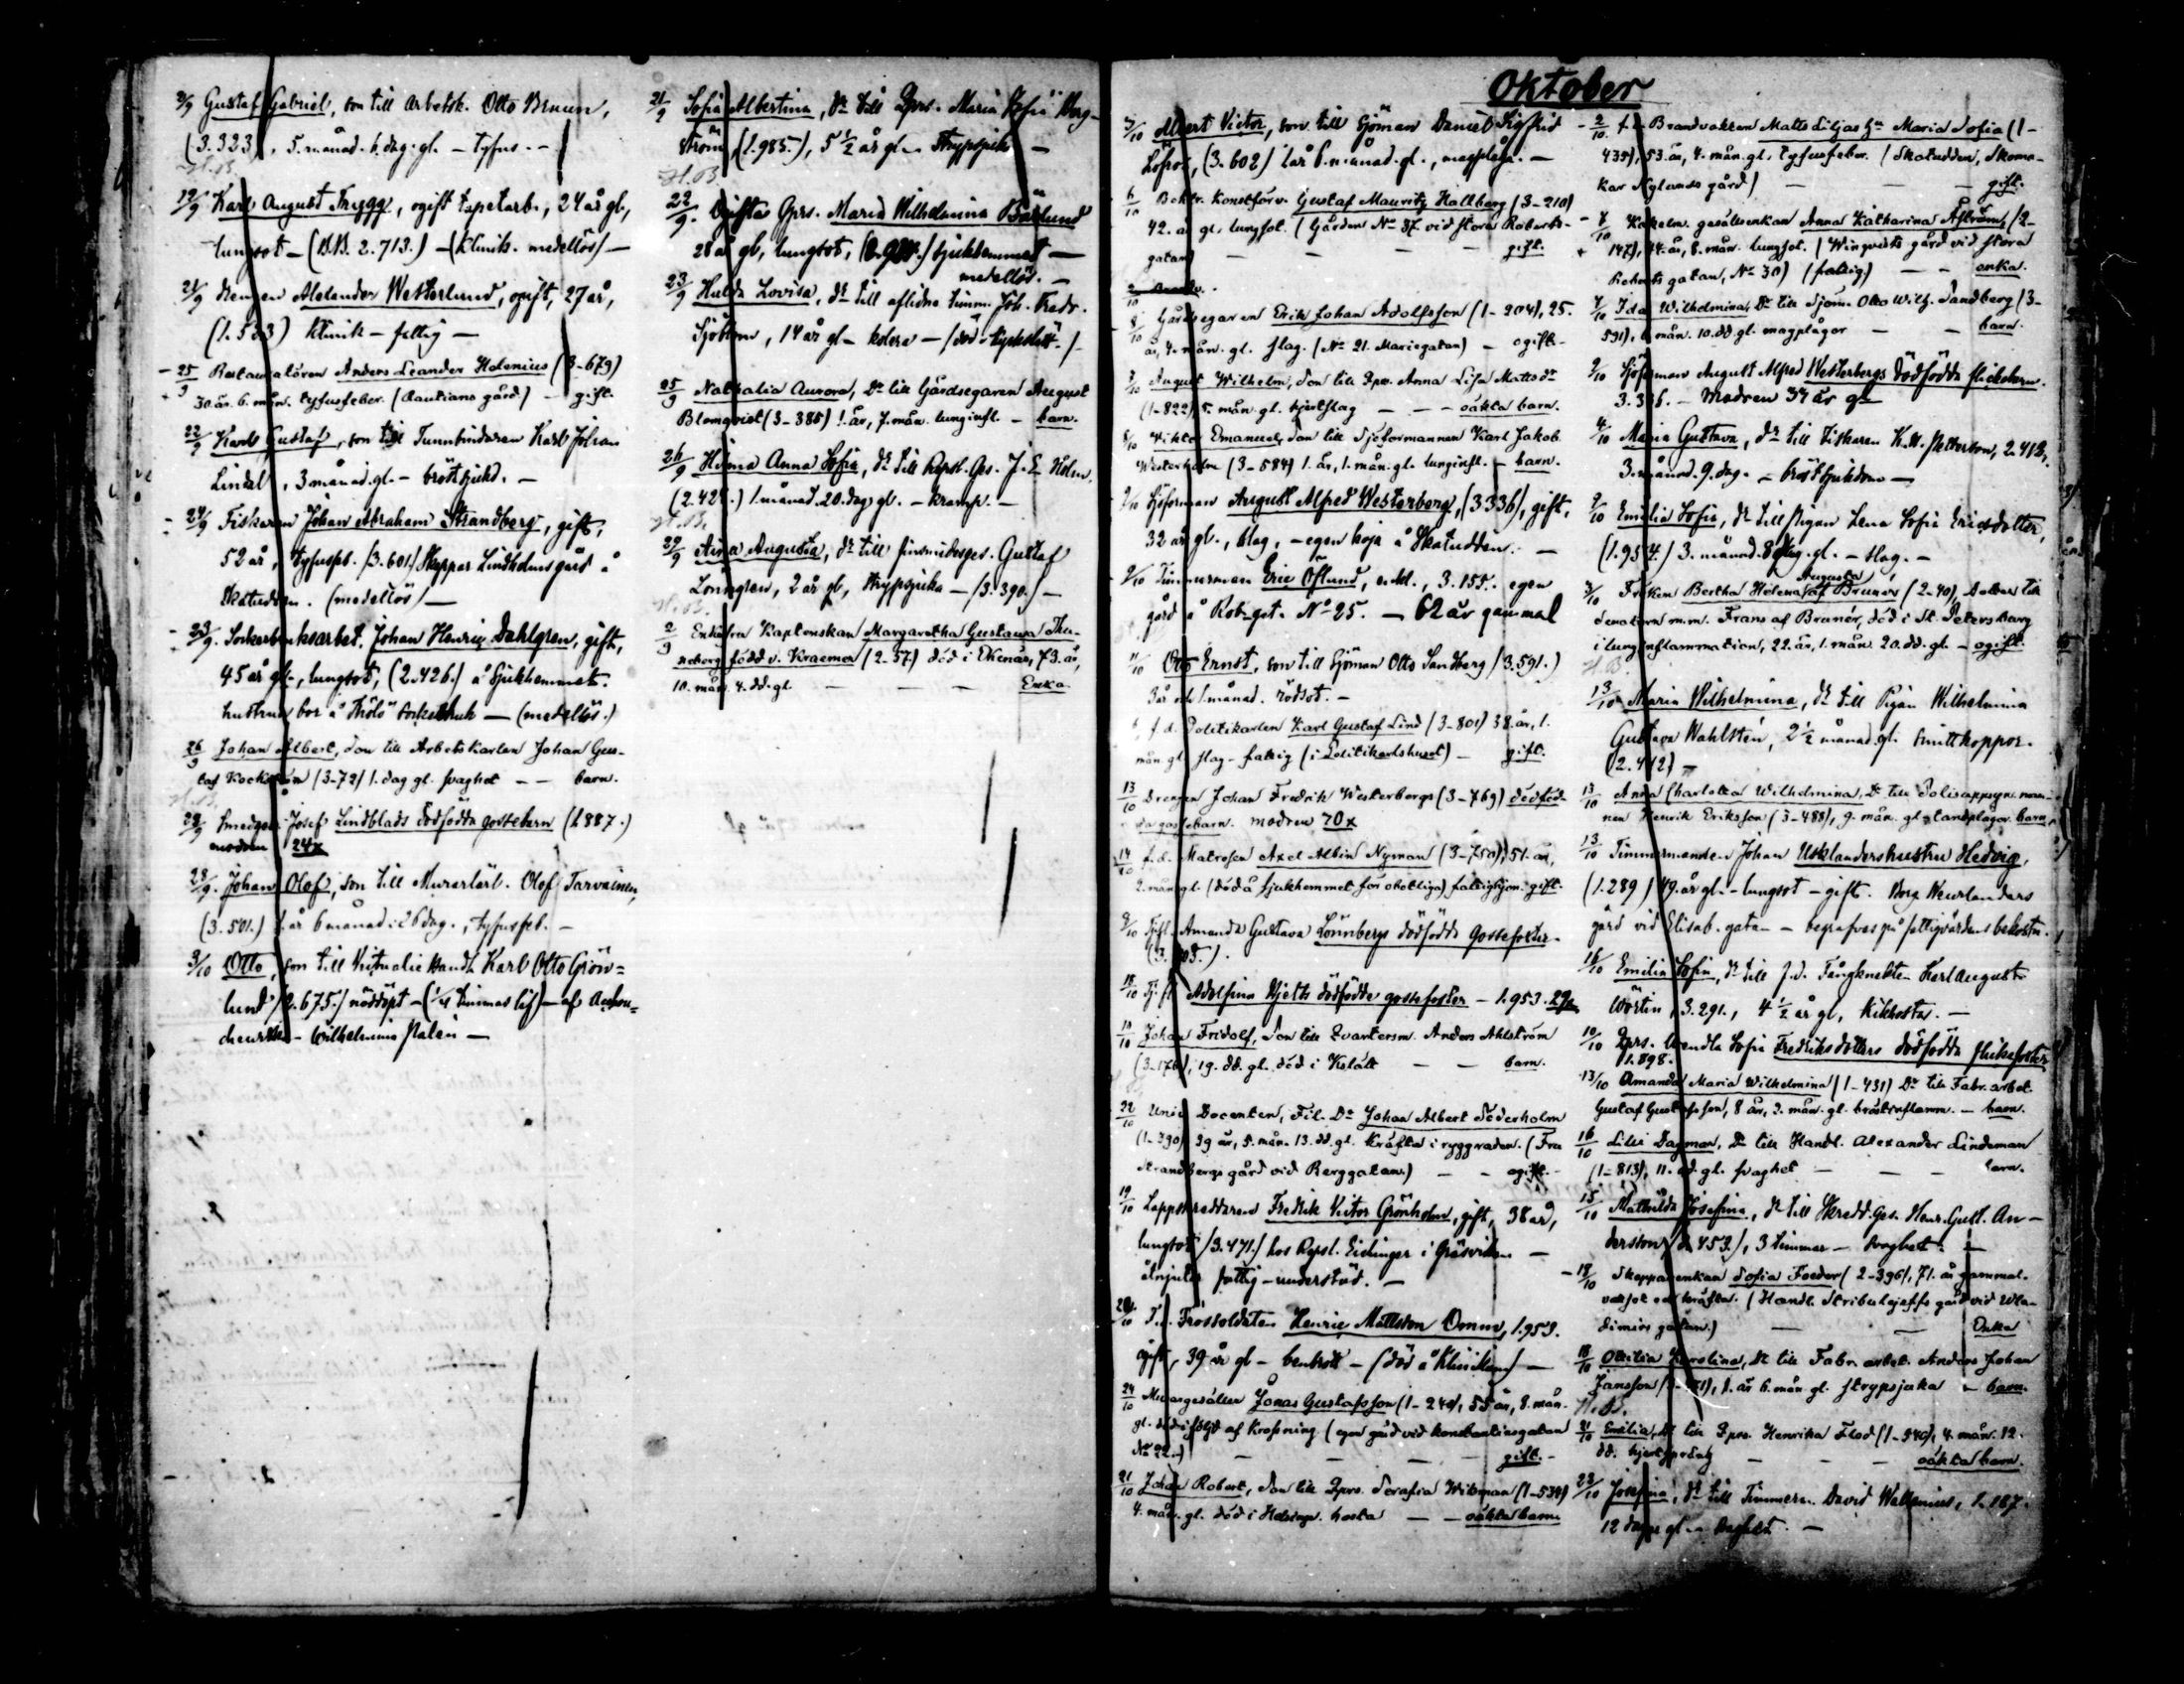 2/9 Gustaf Gabriel, son till arbetsk. Otto Bruun,
(3.323), 5. månad. 6. dag. gl. – tyfus. –
19/9 Karl August Trygg, ogift tapetarb., 24 år gl.,
lungsot – (B.B. 2.713.) – (Klinik. medellös) –
21/9 Alexander Westerlund, ogift, 27 år,
(1.533) Klinik – fattig –
– 25/9 Restauratören Anders Leander Helenius (3–679)
30. år. 6. mån. tyfusfeber. (Rautians gård) – gift.
22/9 Karl Gustaf, son till Tunnbindaren Karl Johan
Lindel, 3 månad. gl. – bröstsjukd. –
24/9 Fiskaren Johan Abraham Strandberg, gift,
52 år, tyfusfeb. (3.601.) Skeppar Lindholms gård å
Skatudden. (medellös) –
23/9. Sockerbruksarbet. Johan Henric Dahlgren, gift,
45 år gl., lungsot, (2.426.) å Sjukhemmet.
hustrun bor å Thölö Sockerbruk – (medellös.)
26/9 Johan Albert, son till Arbetskarlen Johan Gus-
taf Kockström (3–72) 1. dag gl. svaghet – – barn.
28/9 Smedges. Josef Lindblads dödfödda gossebarn (1.887.)
modren 24
28/9. Johan Olof, son till Murarlärl. Olof Tarvainen,
(3.501.) 1 år 6 månad. 26 dag., tyfusfeb. –
3/10 Otto, son till Victualie Handl. Karl Otto Grön=
lund (2.675.) nöddöpt – (1/4 timmas lif) – af
– Wilhelmina Palén –
21/9 Sofia Albertina, dr till Qprs. Maria Sofia Berg-
ström, (1.985.), 5 1/2 år gl. – Strypsjuk –
22/9. Ogifta Qprs. Maria Wilhelmina Bärlund
28 år gl, lungsot, sjukhemmet –
medellös. –
23/9 Hulda Lovisa, dr till aflidne timm. Joh. Fredr.
Sjöblom, 14 år gl – kolera –
25/9 Nathalia Aurora, Dr till Gårdsegaren August
Blomqvist (3–385) 1. år, 7. mån. lunginfl. – barn.
26/9 Hilma Anna Sofia, dr till Repsl. Ges. J. E. Holm,
(2.428.) 1. månad. 20. dag. gl. – kramp. –
29/9 Aina Augusta, dr till finsmidesges. Gustaf
Lönngren, 2 år gl, strypsjuka – (3.390.) –
2/9 Enkefru Kaptenskan Margaretha Gustava Thu-
neberg född v. Kraemer (2.57) död i Ekenäs, 73. år,
10. mån. 4. dd. gl. – – – Enka.
Oktober
5/10 Albert Victor, son till Sjöman Daniel Sigfrid
Löfroos, (3.602) 1 år 6. månad. gl., magplåga. –
6/10 Boktr. Konstförv. Gustaf Mauritz Hallberg (3–210)
42. år gl. lungsot. (Gården No 37. vid stora Roberts-
gatan) – – – gift.
8/10 Gårdsegaren Erik Johan Adolfsson (1–204), 25.
år, 4. mån. gl. slag. (No 21. Mariegatan) – ogift.
7/10 August Wilhelm, Son till Qprs. Anna Lisa Matts dr
(1–822) 5. mån. gl. hjertslag – – – oäkta barn.
8/10 Viktor Emanuel, Son till Sjöformannen Karl Jakob
Westerholm (3–584) 1. år, 1. mån. gl. lunginfl. – barn.
9/10 Sjöforman August Alfred Westerberg, (3.336), gift,
32 år gl., slag, – egen koja å Skatudden. –
9/10 Timmerman Eric Öflund, enkl., 3.155. egen
gård å Rob=gat. No 25. – 62 år gammal
11/10 Otto Ernst, son till Sjöman Otto Sandberg (3.591.)
3 år och 1. månad. rödsot. –
f. d. Politikarlen Karl Gustaf Lind (3–801) 38. år, 1.
mån. gl. slag – fattig (i Politikarlshuset) – gift.
13/10 Drengen Johan Fredrik Westerbergs (3–769) dödföd-
da gossebarn. modren 20x
14/10 f. d. Matrosen Axel Albin Nyman (3–750), 51. år,
2. mån. gl. (död å sjukhemmet för obotliga) fattighjon. gift.
9/10 Amanda Gustava Lönnbergs dödfödda gossefoster.
18/10 Adolfina Hjelts dödfödda gossefoster – 1.953.
18/10 Johan Fridolf, Son till Qvarterm. Anders Ahlström
(3–176), 19. dd. gl. död i Kslätt – – barn.
22/10 Univ. Docenten, Fil. Dr Johan Albert Söderholm
(1–330) 39 år, 5. mån. 13. dd. gl. Kräfta i ryggraden. (Fru
Strandbergs gård vid Berggatan.) – – ogift. –
19/10 Lappskräddaren Fredrik Victor Grönholm, gift, 38 år,
lungsot (3.471.) hos Repsl. Eidinger i Gräsviken –
åtnjuter fattig-understöd. –
20/10 F.d. Trossoldaten Henric Mattsson Ommn, 1.959.
ogift, 39 år gl – benbrott – (död å Kliniken) –
24/10 Murargesällen Jonas Gustafsson (1–240), 55 år, 8. mån.
gl. död i följd af krossning (egen gård vid Konstantinsgatan
No 22.) – – – – gift. –
21/10 Johan Robert, Son till Qprs. Serafia Widman (1–534)
4. mån. gl. död i Helsinge. hosta – – oäkta barn.
– 2/10. f. d. Brandvakten Matts Liljas Hu Maria Sofia (1–
435), 53. år, 4. mån. gl. tyfusfeber. (Skatudden, Skoma-
kar Nylunds gård) – – – gift.
– 7/10 Kakelm. gesällsenkan Anna Katharina Åström, (2–
147), 44. år, 8. mån. lungsot. (Winqvists gård vid stora
Roberts gatan, No 30) (fattig) – – enka.
7/10 Ida Wilhelmina, Dr till Sjöm. Otto Wilh. Sandberg (3–
591), 6. mån. 10. dd. gl. magplågor – – barn.
9/10 Sjöforman August Alfred Westerbergs dödfödda flickebarn.
3.336. – Modren 34 år gl
4/10 Maria Gustava, dr till Fiskaren K. W. Petterson, 2.418.,
3. månad. 9. dag. – bröstsjukdom –
9/10 Emilia Sofia, dr till Pigan Lena Sofia Ericsdotter,
(1.954.) 3. månad. 8 dag. gl. – slag. –
3/10 Fröken Bertha Helena Augusta af Brunér (2–40), Dotter till
Senatorn m.m. Frans af Brunér, död i St. Petersburg
i lunginflammation, 22. år, 1. mån. 20. dd. gl. – ogift.
13/10 Maria Wilhelmina, dr till Pigan Wilhelmina
Gustava Wahlstén, 2 1/2 månad. gl. smittkoppor.
(2.412) –
13/10 Anna Charlotta Wilhelmina, Dr till Polisuppsynsman-
nen Henrik Eriksson (3–488), 9. mån. gl. tandplågor. barn.
13/10 Timmermanden Johan Usklanders hustru Hedvig,
(1.289) 49. år gl. – lungsot – gift. Borg. Neurlanders
gård vid Elisab. gatan – begrafves på fattigvårdens bekostn.
16/10 Emilia Sofia, dr till f.d. Fångknekten Karl August
Wörtin, 3.291., 4 1/2 år gl, Kikhosta. –
10/10 Qprs. Wendla Sofia Fredriksdotters dödfödda flickefoster
1.898.
13/10 Amanda Maria Wilhelmina (1–431) Dr till Fabr. arbet.
Gustaf Gustafsson, 8 år, 3. mån. gl. bröstinflamm. – barn.
16/10 Lilli Dagmar, Dr till Handl. Alexander Lindeman
(1–813), 11. dd. gl. svaghet – – – barn.
15/10 Mathilda Josefina, dr till Skredd. Ges. Henr. Gust. An–
derston, 3 timmar – svaghet. –
– 18/10 Skepparenkan Sofia Foeder (2–396), 71. år gammal.
(Handl. gård vid Wla-
dimirs gatan.) – – Enka
18/10 Ottilia Karolina, Dr till Fabr. arbet. Anders Johan
Jansson, 1. år 6. mån. gl. strypsjuka – barn.
21/10 Emilia, Dr till Qprs. Henrika Flod (1–940), 4. mån. 12.
dd. – – – oäkta barn.
23/10 Josefina, dr till Timmerm. David Wallenius, 1.187.
12 dagar gl – svaghet. –